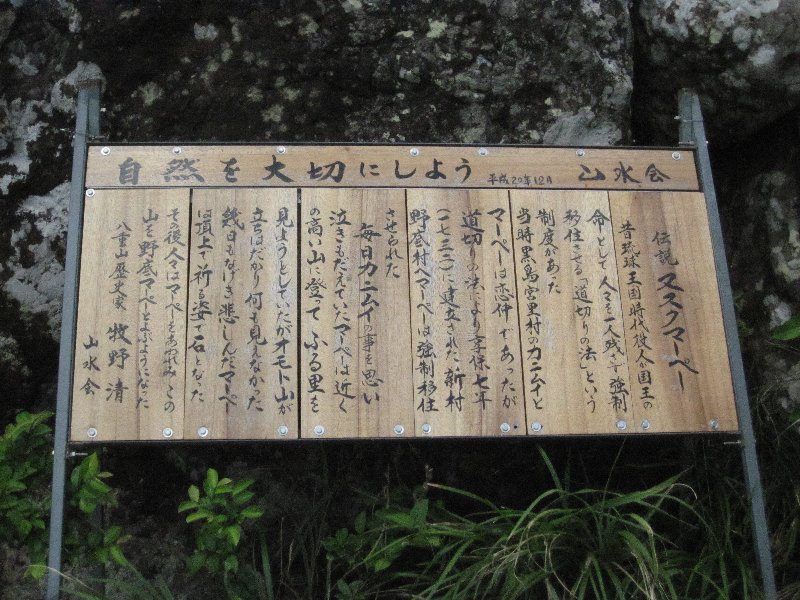 自然を大切にしよう 平成20年12月 山水会
伝説 ヌスクマーペー
昔琉球王国時代役人が国王の
命として人々を一人残さず強制
移住させる「道切りの法」という
制度があった
当時黒島宮里村のカニムイと
マーペーは恋仲であったが
道切りの法により享保七年
(一七三二)に建立された新村
野底村へマーペーは強制移住
させられた
毎日カニムイの事を思い
泣きもだえていたマーペーは近く
の高い山に登って ふる里を
見ようとしていたがオモト山が
立ちはだかり 何も見えなかった
幾日もなげき悲しんだマーペー
は頂上で祈る姿で石になった
その後人々はマーペーをあわれみ この
山を野底マーペとよぶようになった
八重山歴史家 牧野清
山水会